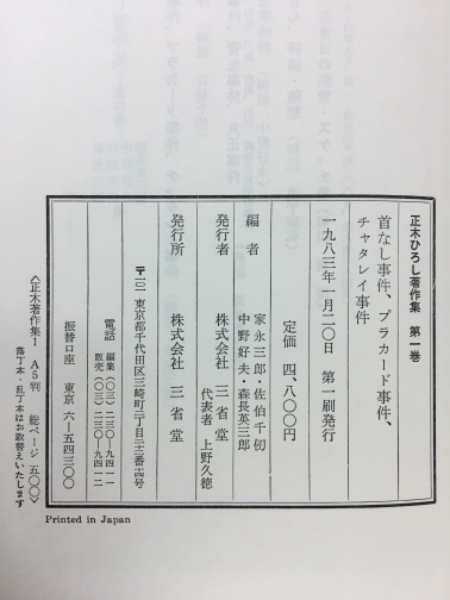 正木ひろし著作集 第一巻
首なし事件、プラカード事件、
チャタレイ事件
一九八三年一月二〇日 第一刷発行
定価 四、八〇〇円
編者
家永三郎・佐伯千仭
中野好夫・森長英三郎
発行者 株式会社 三省堂
代表者 上野久徳
発行所 株式会社 三省堂
〒一〇一 東京都千代田区三崎町二丁目二十二番十四号
電話 編集(〇三)二三〇―九四一一
販売(〇三)二三〇―九四一二
振替口座 東京 六―五四三〇〇
〈正木著作集1 A5判 総ページ 五〇〇〉
落丁本・乱丁本はお取替えいたします
Printed in Japan